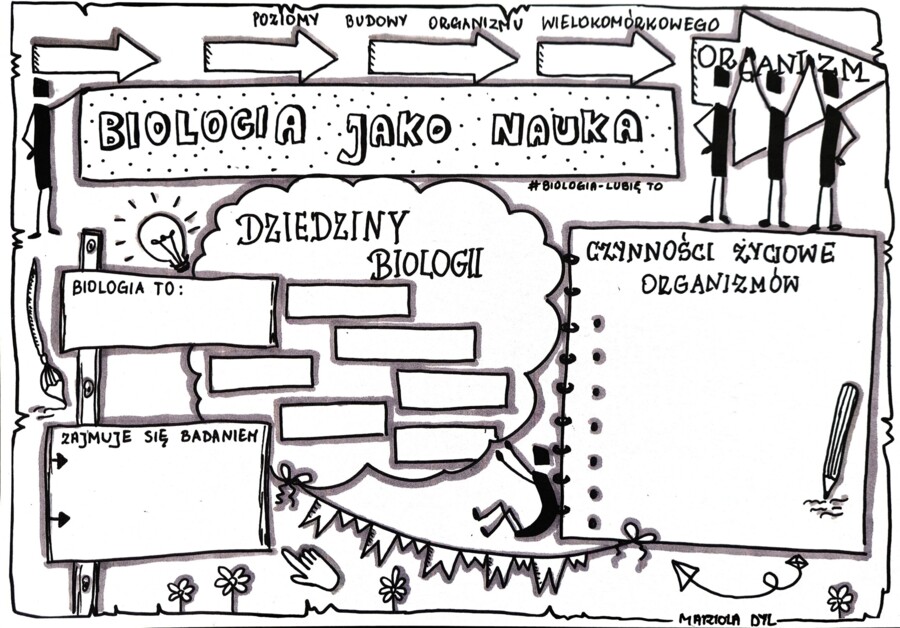 POZIOMY BUDOWY ORGANIZMU WIELOKOMÓRKOWEGO
ORGANIZM
BIOLOGIA JAKO NAUKA
#BIOLOGIA-LUBIĘ TO
DZIEDZINY
BIOLOGII
CZYNNOŚCI ŻYCIOWE
ORGANIZMÓW
BIOLOGIA TO:
ZAJMUJE SIĘ BADANIEM
MARIOLA DYL